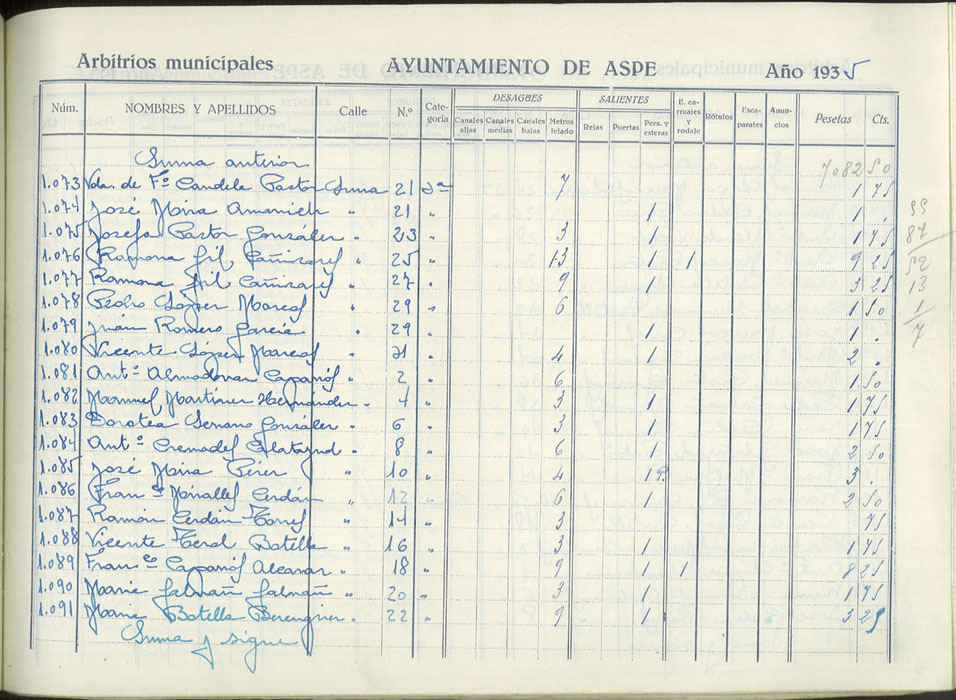 Arbitrios municipales AYUNTAMIENTO DE ASPE Año 1935
Núm. NOMBRES Y APELLIDOS Calle N.º Categoría DESAGÜES Canales altas Canales medias Canales bajas Metros tejado SALIENTES Rejas Puertas Pers. y esteras E. carruajes y rodaje Rótulos Escaparates Anuncios Pesetas Cts.
Suma anterior 7082 50
1.073 Vda. de Fº Candela Pastor 21 7 1 75
1.074 José Mira 21 " 1 1 .
1.075 Josefa Pastor González " 23 " 3 1 1 75
1.076 Ramona Gil Cañizares " 25 " 13 1 1 9 25
1.077 Ramona Gil Cañizares " 27 " 9 1 3 25
1.078 Pedro López " 29 " 6 1 50
1.079 Juan Romero García " 29 " 1 1 .
1.080 Vicente López " " 4 1 2 .
1.081 Antº Almodovar Caparrós " 2 " 6 1 50
1.082 Manuel Martínez Hernández " 4 " 3 1 1 75
1.083 Dorotea Serrano González " 6 " 3 1 1 75
1.084 Antº Cremades Calatayud " 8 " 6 1 2 50
1.085 José Mira Pérez " 10 " 4 1 3 .
1.086 Franco Mirallel Cerdán " 12 " 6 1 2 50
1.087 Ramón Cerdán Torres " 14 " 3 75
1.088 Vicente Botella " 16 " 3 1 1 75
1.089 Franco Caparrós Alcaraz " 18 " 9 1 1 8 25
1.090 María Galvañ Galvañ " 20 " 3 1 1 75
1.091 María Botella Berenguer " 22 " 9 1 3 25
Suma y sigue
87
52
13
1
7